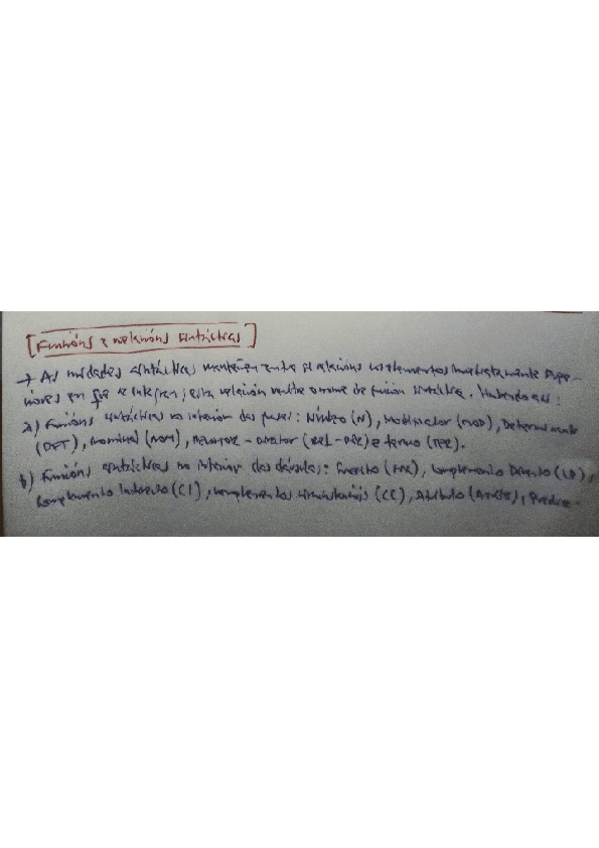 [Funcións e relacións sintácticas]
→ As unidades sintácticas manteñen entre si relacións inmediatamente supe-
riores en que se integran; esta relación recibe o nome de función sintáctica.
a) Funcións sintácticas no interior das frases: Núcleo (N), Modificador (MOD), Determinante
(DET), nominal (NOM), Relator - Director (REL-DIR) e termo (TER).
b) Funcións sintácticas no interior das cláusulas: Suxeito, Complemento Directo (CD),
Complemento Indirecto (CI), complementos circunstanciais (CC), Atributo, Predica-